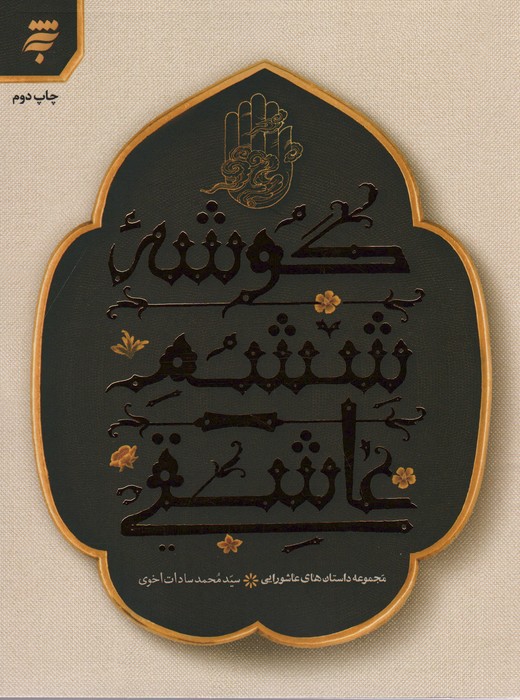 به
چاپ دوم
گوشهٔ
ششمِ
عاشقی
مجموعه داستان‌های عاشورایی ❋ سیّد مُحمد سادات اخوی